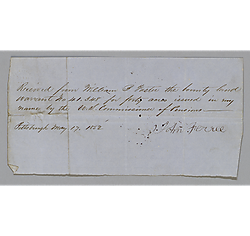 Received from William P Foster the bounty land
warrant No 41,345 for forty acres issued in my
name by the U.S. Commissioner of Pensions.
Pittsburgh May 17, 1852
John